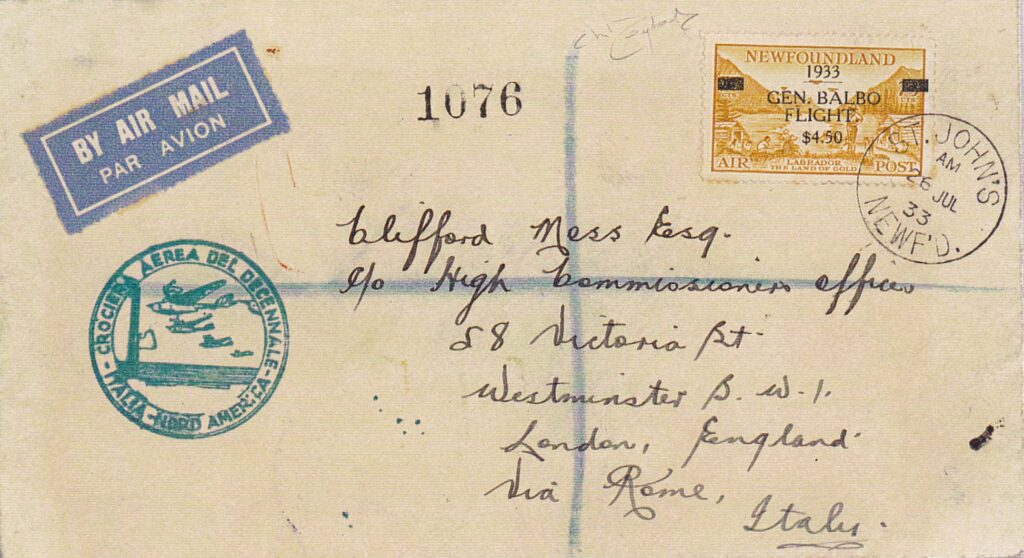 BY AIR MAIL
PAR AVION
1076
NEWFOUNDLAND
1933
GEN. BALBO
FLIGHT
$4.50
AIR
LABRADOR
THE LAND OF GOLD
POST
ST. JOHN'S
AM
26 JUL
33
NEWF'D.
CROCIERA AEREA DEL DECENNALE
ITALIA - NORD AMERICA
Clifford Mess Esq.
c/o High Commissioners office
58 Victoria St.
Westminster S. W. 1.
London, England.
Via Rome,
Italy.